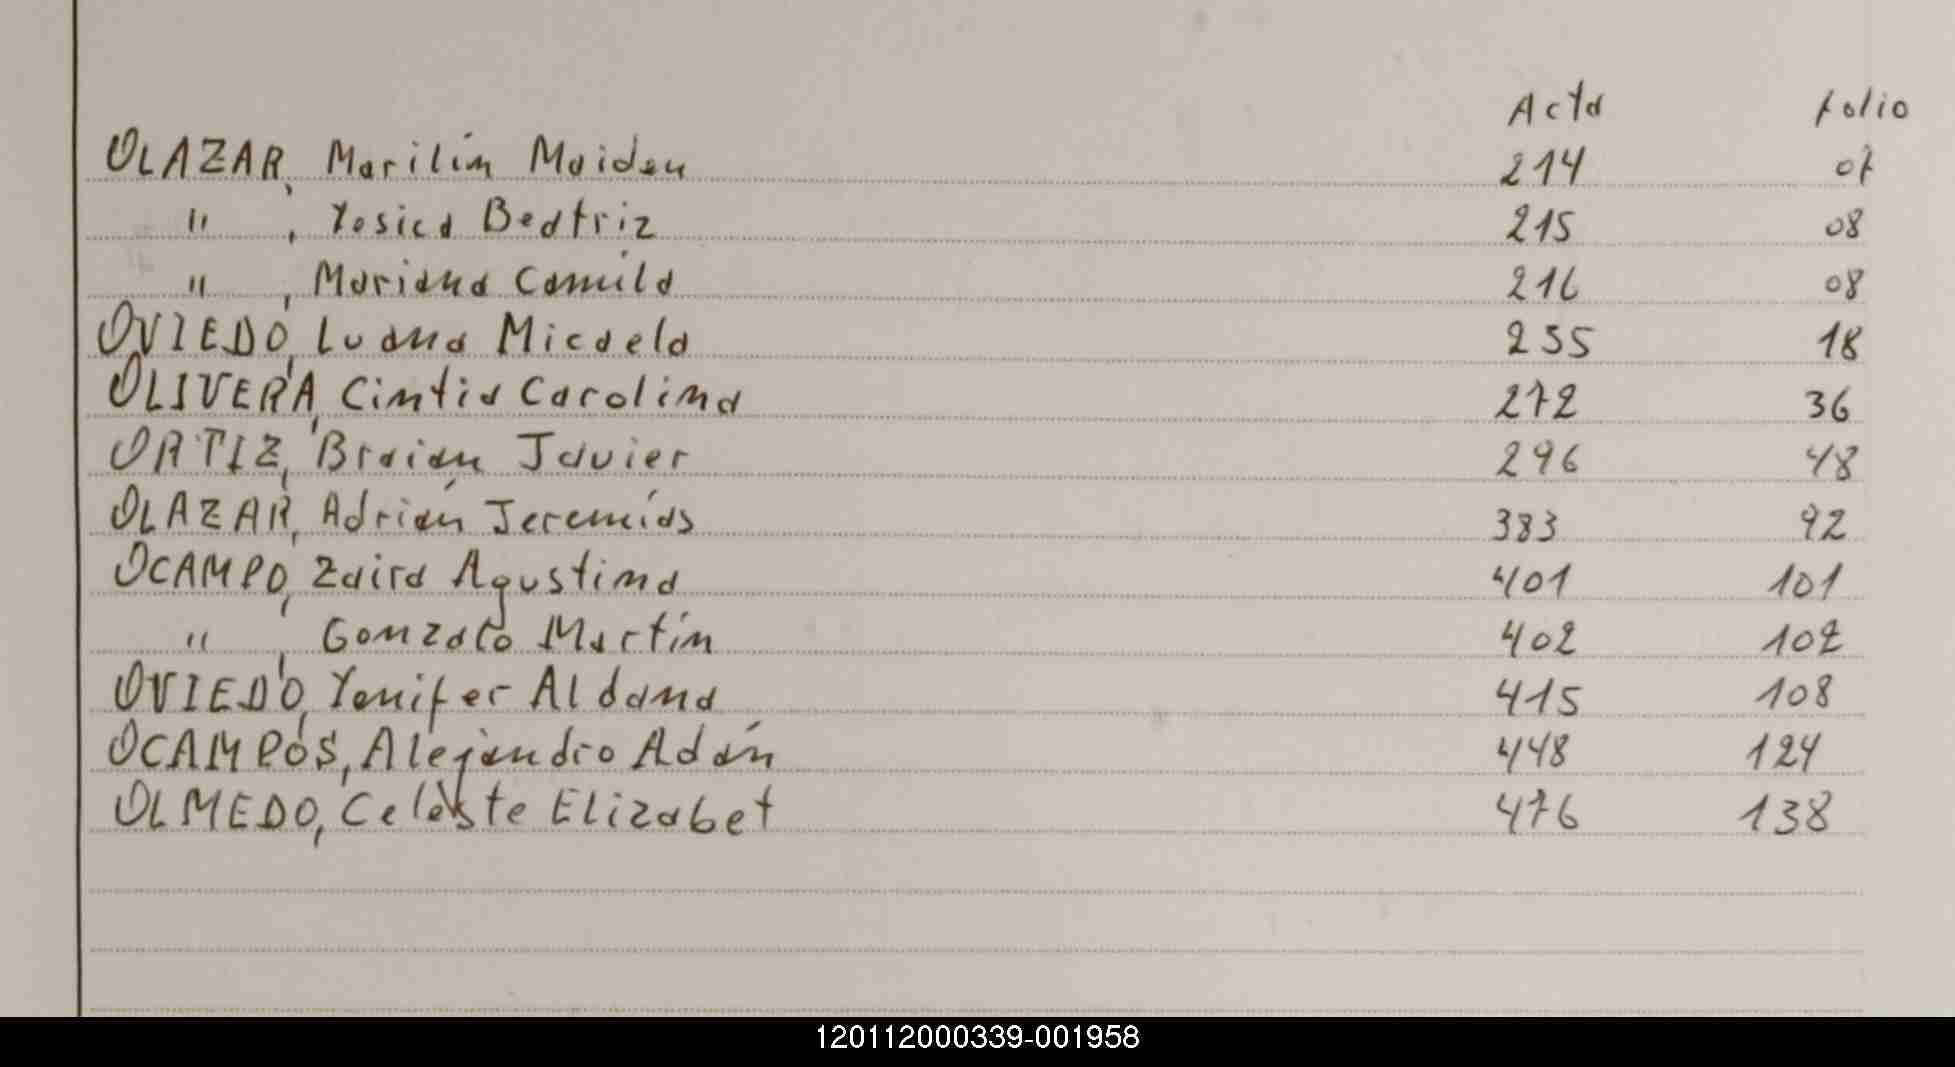 Acta folio
OLAZAR, Marilin Maiden 214 07
" , Yosica Beatriz 215 08
" , Mariana Camila 216 08
OVIEDO, Luana Micaela 235 18
OLIVERA, Cintia Carolina 272 36
ORTIZ, Braian Javier 296 48
OLAZAR, Adrián Jeremías 383 92
OCAMPO, Zaira Agustina 401 101
" , Gonzalo Martín 402 102
OVIEDO, Yenifer Aldana 415 108
OCAMPOS, Alejandro Adán 448 124
OLMEDO, Celeste Elizabet 476 138
120112000339-001958